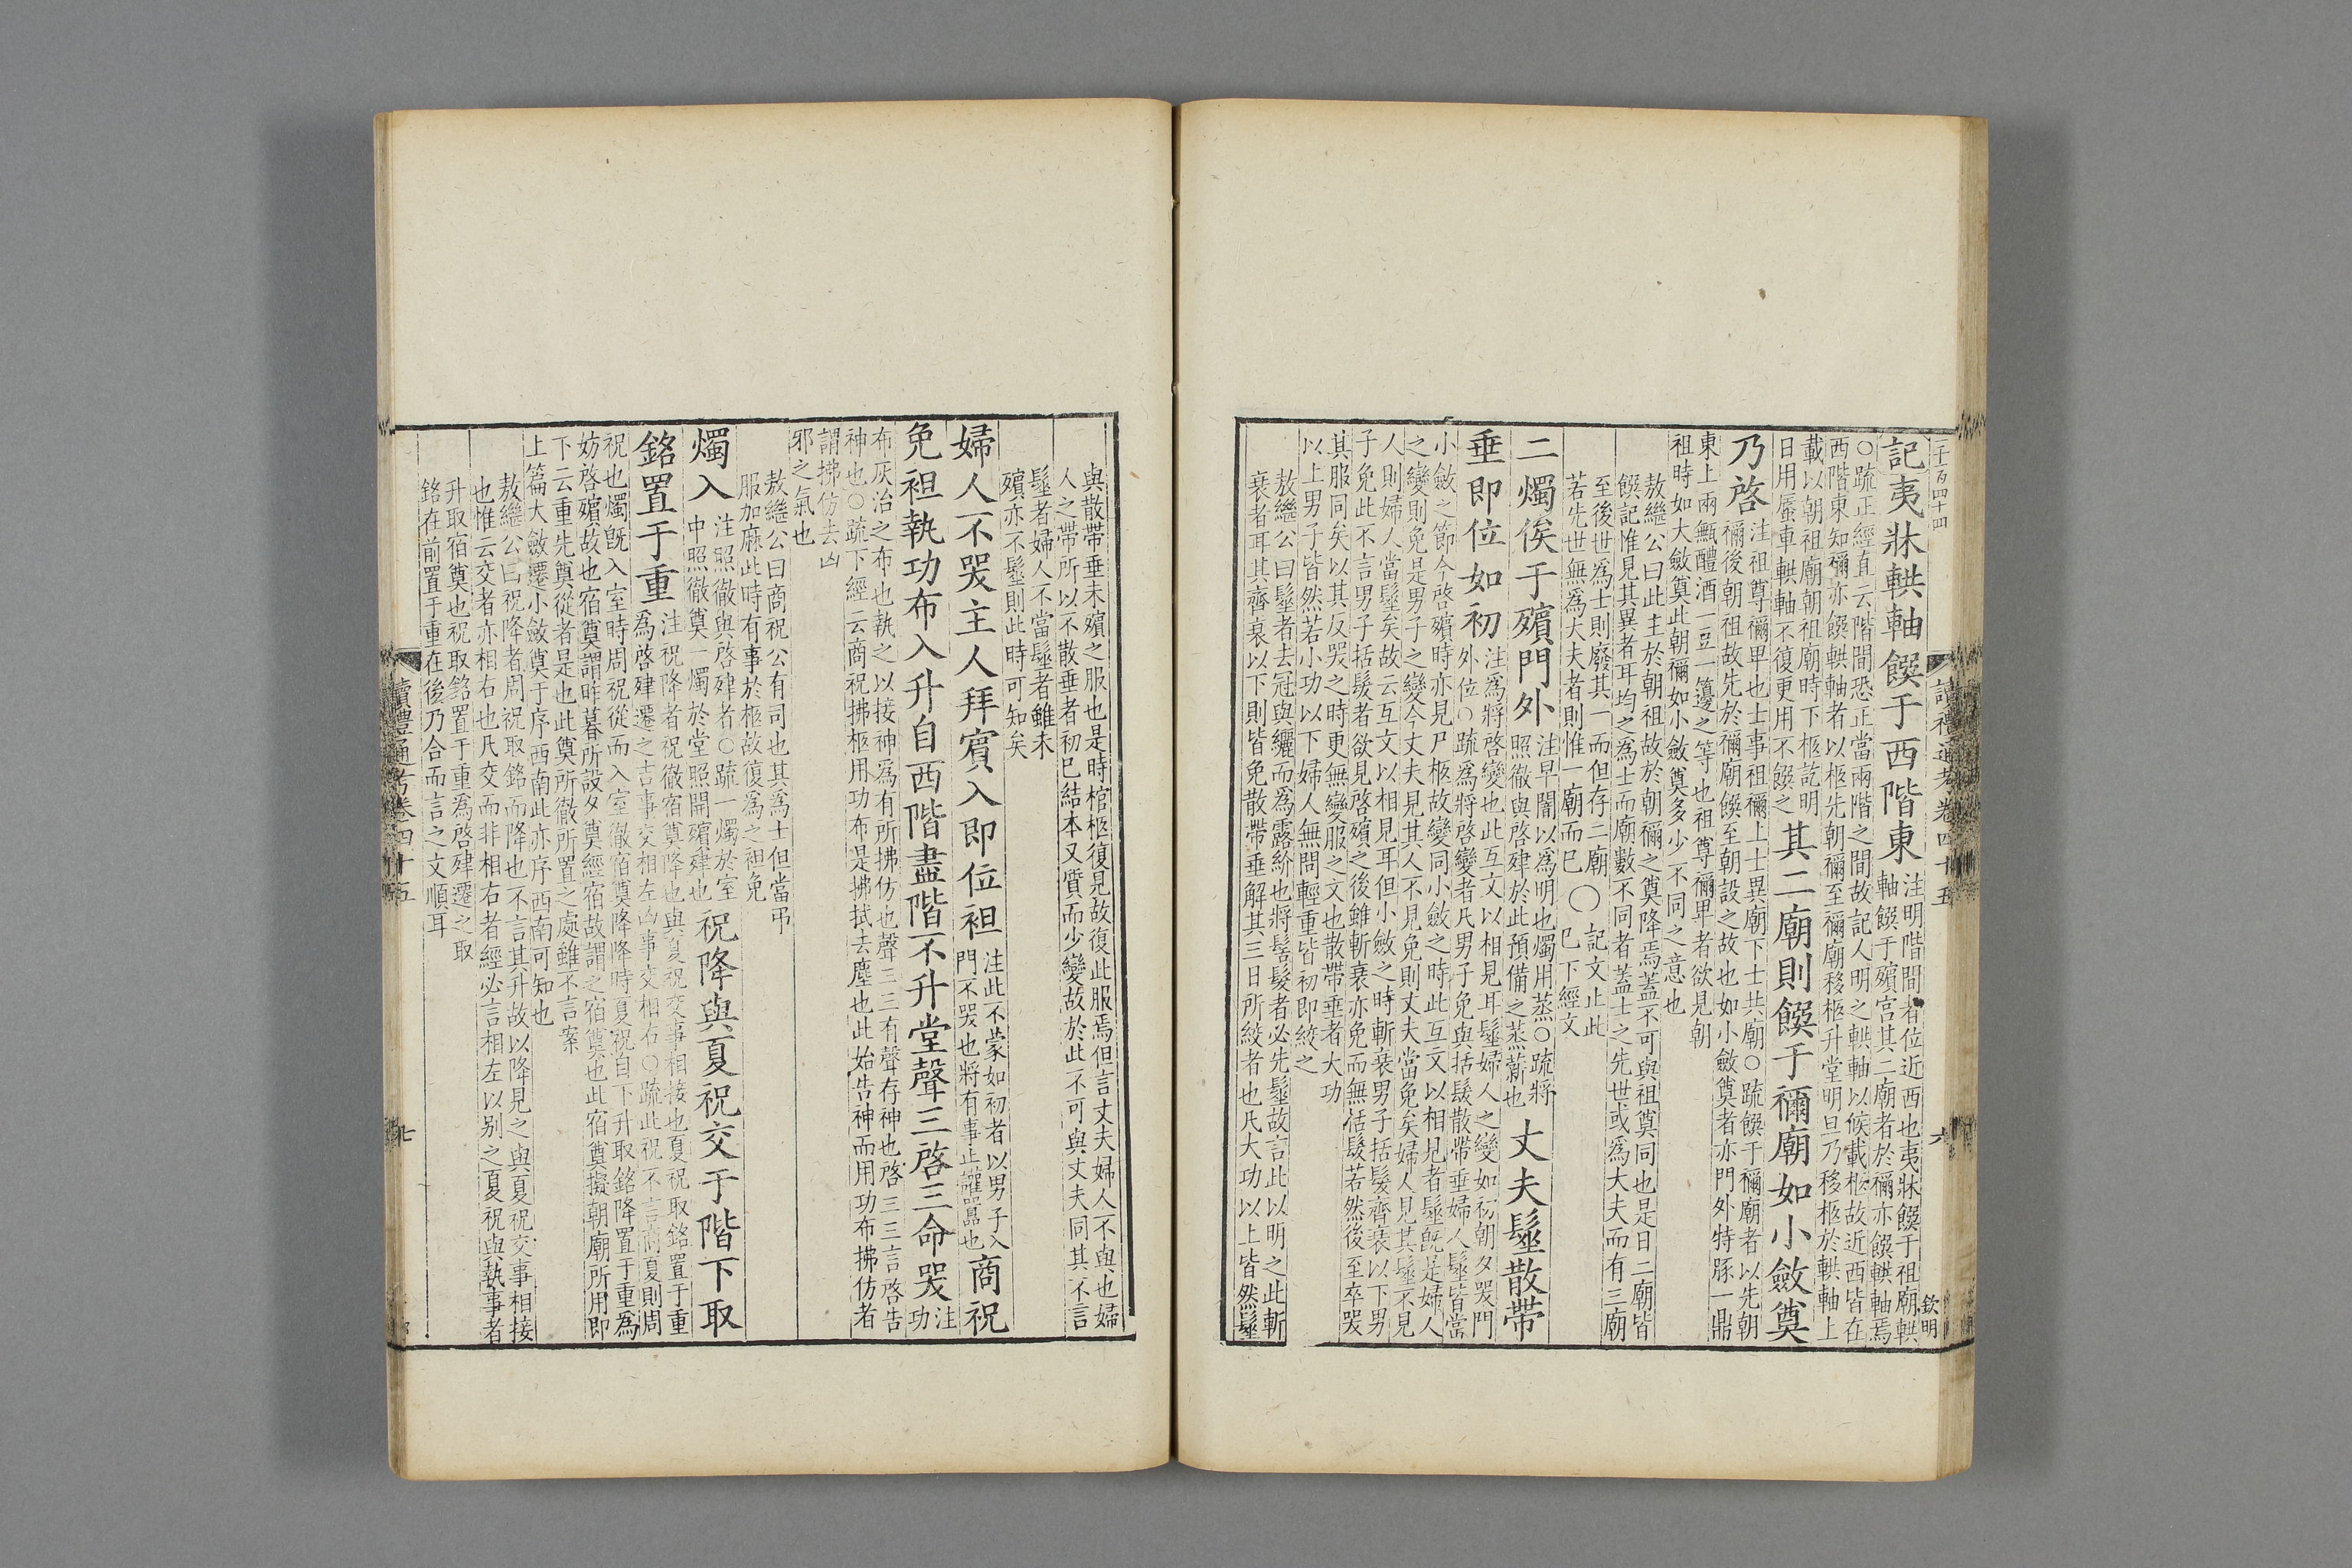 二百四十四
讀禮通考卷四十五
六
欽明
記夷牀輁軸饌于西階東注明階間者位近西也夷牀饌于祖廟輁
軸饌于殯宮其二廟者於禰亦饌輁軸焉
○疏正經直云階間恐正當兩階之間故記人明之輁軸以候載柩故近西皆在
西階東知禰亦饌輁軸者以柩先朝禰至禰廟移柩升堂明旦乃移柩於輁軸上
載以朝祖廟朝祖廟時下柩訖明
日用蜃車輁軸不復更用不饌之其二廟則饌于禰廟如小斂奠
乃啓注祖尊禰卑也士事祖禰上士異廟下士共廟○疏饌于禰廟者以先朝
禰後朝祖故先於禰廟饌至朝設之故也如小斂奠者亦門外特豚一鼎
東上兩甒醴酒一豆一籩之等也祖尊禰卑者欲見朝
祖時如大斂奠此朝禰如小斂奠多少不同之意也
敖繼公曰此主於朝祖故於朝禰之奠降焉蓋不可與祖奠同也是日二廟皆
饌記惟見其異者耳均之爲士而廟數不同者蓋士之先世或爲大夫而有三廟
至後世爲士則廢其一而但存二廟
若先世無爲大夫者則惟一廟而已○記文止此
已下經文
二燭俟于殯門外注早闇以爲明也燭用蒸○疏將
照徹與啓肂於此預備之蒸薪也丈夫髽散帶
垂即位如初注爲將啓變也此互文以相見耳髽婦人之變如初朝夕哭門
外位○疏爲將啓變者凡男子免與括髮散帶垂婦人髽皆當
小斂之節今啓殯時亦見尸柩故變同小斂之時此互文以相見者髽旣是婦人
之變則免是男子之變今丈夫見其人不見免則丈夫當免矣婦人見其髽不見
人則婦人當髽矣故云互文以相見耳但小斂之時斬衰男子括髮齊衰以下男
子免此不言男子括髮者欲見啓殯之後雖斬衰亦免而無括髮若然後至卒哭
其服同矣以其反哭之時更無變服之文也散帶垂者大功
以上男子皆然若小功以下婦人無問輕重皆初即絞之
敖繼公曰髽者去冠與纚而爲露紒也將髻髮者必先髽故言此以明之此斬
衰者耳其齊衰以下則皆免散帶垂解其三日所絞者也凡大功以上皆然髽
與散帶垂未殯之服也是時棺柩復見故復此服焉但言丈夫婦人不與也婦
人之帶所以不散垂者初已結本又質而少變故於此不可與丈夫同其不言
髽者婦人不當髽者雖未
殯亦不髽則此時可知矣
婦人不哭主人拜賓入即位袒注此不蒙如初者以男子入
門不哭也將有事止讙囂也商祝
免袒執功布入升自西階盡階不升堂聲三啓三命哭注
功
布灰治之布也執之以接神爲有所拂仿也聲三三有聲存神也啓三三言啓告
神也○疏下經云商祝拂柩用功布是拂拭去塵也此始告神而用功布拂仿者
謂拂仿去凶
邪之氣也
敖繼公曰商祝公有司也其爲士但當弔
服加麻此時有事於柩故復爲之袒免
燭入注照徹與啓肂者○疏一燭於室
中照徹奠一燭於堂照開殯肂也祝降與夏祝交于階下取
銘置于重注祝降者祝徹宿奠降也與夏祝交事相接也夏祝取銘置于重
爲啓肂遷之吉事交相左凶事交相右○疏此祝不言商夏則周
祝也燭旣入室時周祝從而入室徹宿奠降降時夏祝自下升取銘降置于重爲
妨啓殯故也宿奠謂昨暮所設夕奠經宿故謂之宿奠也此宿奠擬朝廟所用即
下云重先奠從者是也此奠所徹所置之處雖不言案
上篇大斂遷小斂奠于序西南此亦序西南可知也
敖繼公曰祝降者周祝取銘而降也不言其升故以降見之與夏祝交事相接
也惟云交者亦相右也凡交而非相右者經必言相左以别之夏祝與執事者
升取宿奠也祝取銘置于重爲啓肂遷之取
銘在前置于重在後乃合而言之文順耳
讀禮通考卷四十五
七